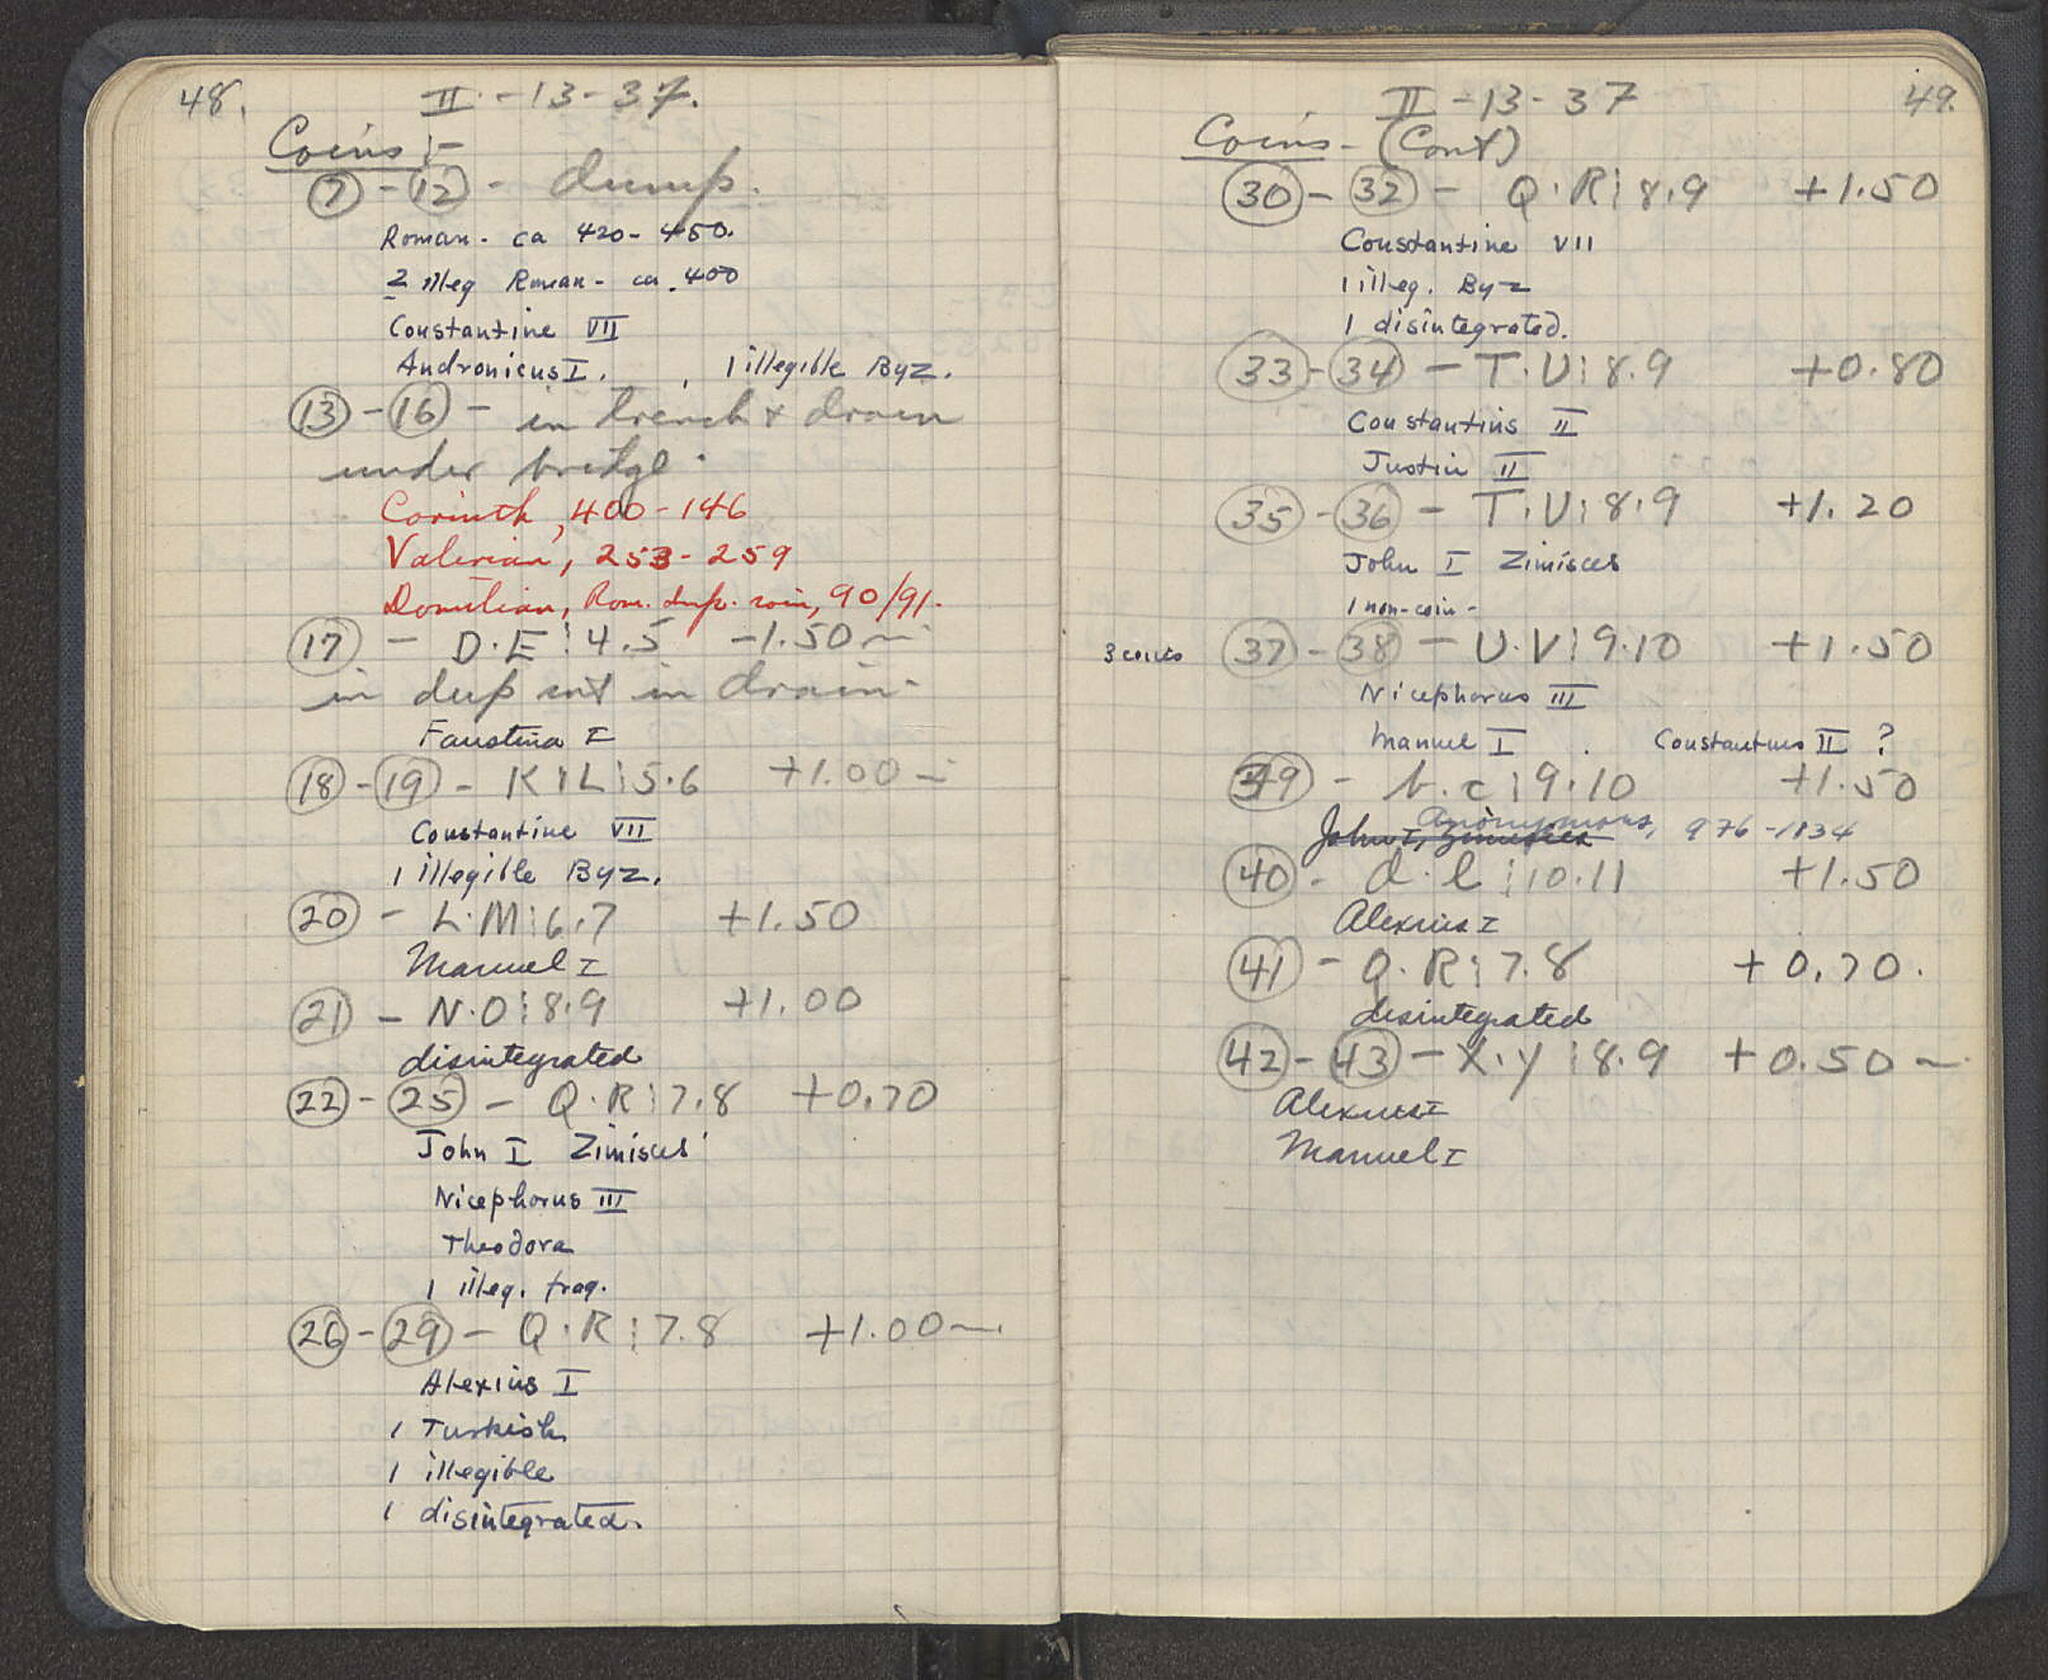 48.
II - 13 - 37.
Coins :-
7 - 12 - dump.
Roman - ca 420 - 450.
2 illeg Roman - ca. 400
Constantine VII
Andronicus I. , 1 illegible Byz.
13 - 16 - in trench & drain
under bridge.
Corinth, 400 - 146
Valerian, 253 - 259
Domitian, Rom. dup. coin, 90/91.
17 - D.E : 4.5 -1.50 m
in deep cut in drain.
Faustina I
18 - 19 - K.L : 5.6 +1.00 -
Constantine VII
1 illegible Byz.
20 - L.M : 6.7 +1.50
Manuel I
21 - N.O : 8.9 +1.00
disintegrated
22 - 25 - Q.R : 7.8 +0.70
John I Zimisces
Nicephorus III
Theodora
1 illeg. frag.
26 - 29 - Q.R : 7.8 +1.00 m.
Alexius I
1 Turkish
1 illegible
1 disintegrated.
49.
II - 13 - 37
Coins - (Cont)
30 - 32 - Q.R : 8.9 +1.50
Constantine VII
1 illeg. Byz
1 disintegrated.
33 - 34 - T.U : 8.9 +0.80
Constantius II
Justin II
35 - 36 - T.U : 8.9 +1.20
John I Zimisces
1 non-coin -
3 coins 37 - 38 - U.V : 9.10 +1.50
Nicephorus III
Manuel I . Constantius II ?
39 - b.c : 9.10 +1.50
John I, Zimisces Anonymous, 976 - 1034
40 - d.e : 10.11 +1.50
Alexius I
41 - Q.R : 7.8 +0.70.
disintegrated
42 - 43 - X.Y : 8.9 +0.50 m
Alexius I
Manuel I